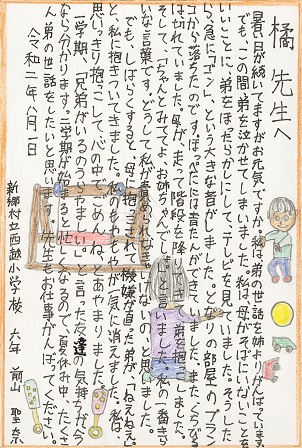 橘先生へ
暑い日が続いてますがお元気ですか。私は弟の世話を姉よりがんばっています。
でも、この間弟を泣かせてしまいました。私は、母がそばにいないことを
いいことに、弟をほったらかしにして、テレビを見ていました。そうした
ら急に「ゴン」という大きな音がしました。となりの部屋のブラン
コから落ちたのです。ほっぺたには青たんができていました。くちびる
は切れていました。母が、走って階段を降りてき、弟を抱っこしました。
そして、「ちゃんとみててよ、お姉ちゃんでしょ」と言いました。私の一番きら
いな言葉です。どうして私が責められなきゃいけないの、と思いました。
でも、しばらくすると、母に抱っこされて機嫌が直った弟が「ねえねえ」
と、私に抱きついてきました。私のもやもやが一気に消えました。私は、
思いっきり抱っこして、心の中でごめんね、とあやまりました。
一学期、「兄弟がいるのうらやましい」と言った友達の気持ちが今
なら分かります。二学期が始まると忙しくなるので、夏休み中、たくさ
ん弟の世話をしたいと思います。先生もお仕事がんばってください。
令和二年八月一日
新郷村立西越小学校 六年 前山聖奈